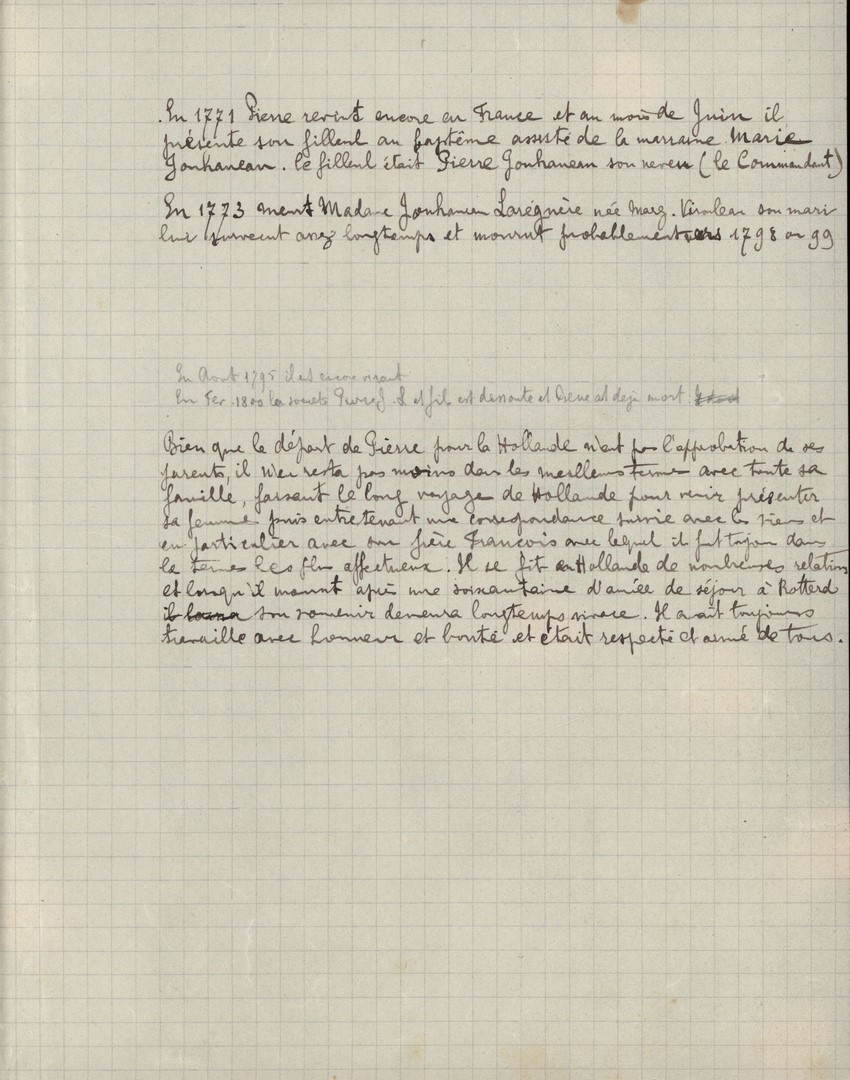 En 1771 Pierre revint encore en France et au mois de Juin il
présente son filleul au baptême assisté de la marraine Marie
Jouhaneau. Ce filleul était Pierre Jouhaneau son neveu (le Commandant)
En 1773 meurt Madame Jouhaneau Laregnère née Marg. Virouleau son mari
lui survecut assez longtemps et mourut probablement vers 1798 ou 99
En Aout 1795 il est encore vivant
En Fev. 1800 la societé et fils est dissoute et est deja mort.
Bien que le départ de Pierre pour la Hollande n'eut pas l'approbation de ses
parents, il n'en resta pas moins dans les meilleurs termes avec toute sa
famille, faisant le long voyage de Hollande pour venir présenter
sa femme puis entretenant une correspondance suivie avec les siens et
en particulier avec son frère François avec lequel il fut toujours dans
les termes les plus affectueux. Il se fit en Hollande de nombreuses relations
et lorsqu'il mourut après une soixantaine d'année de séjour à Rotterd
son souvenir demeura longtemps vivace. Il avait toujours
travaillé avec honneur et bonté et était respecté et aimé de tous.